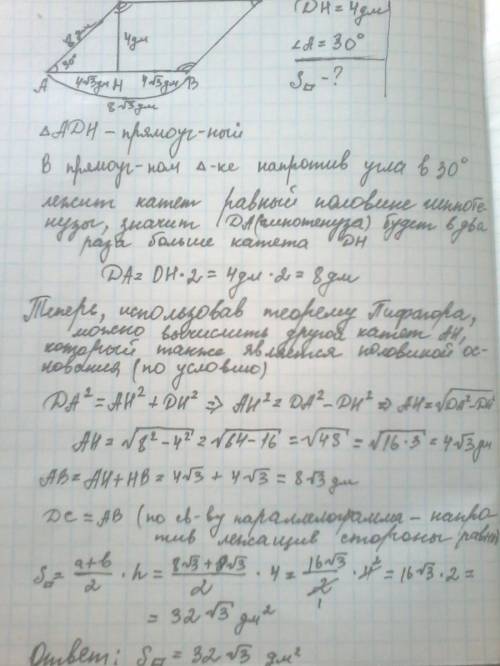 DH = 4дм
8дм
4дм
∠A = 30°
30°
S▱ - ?
A 4√3дм H 4√3дм B
8√3 дм
△ADH – прямоуг-ный
В прямоуг-ном △-ке напротив угла в 30°
лежит катет равный половине гипоте-
нузы, значит DA(гипотенуза) будет в два
раза больше катета DH
DA = DH · 2 = 4дм · 2 = 8дм
Теперь, использовав теорему Пифагора,
можно вычислить другой катет AH,
который также является половиной ос-
нования (по условию)
DA² = AH² + DH² ⇒ AH² = DA² - DH² ⇒ AH = √DA² - DH²
AH = √8² - 4² = √64 - 16 = √48 = √16 · 3 = 4√3 дм
AB = AH + HB = 4√3 + 4√3 = 8√3 дм
DC = AB (по св-ву параллелограмма – напро-
тив лежащие стороны равны)
S▱ = a+b/2 · h = 8√3 + 8√3/2 · 4 = 16√3/2 · 4² = 16√3 · 2 =
1
= 32√3 дм²
Ответ: S▱ = 32√3 дм²